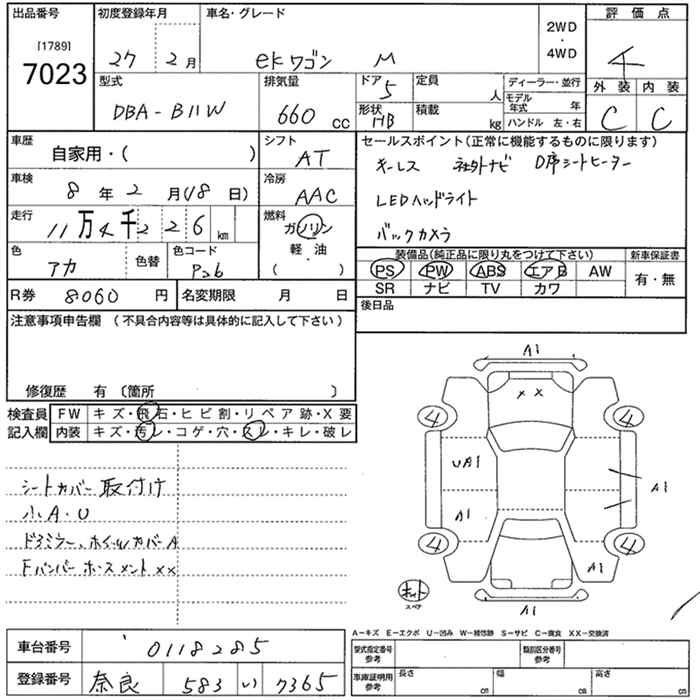 出品番号 初度登録年月 車名・グレード
[1789]
7023
27 2月 ekワゴン M
2WD
・
4WD
評価点
4
型式 排気量 ドア 定員 ディーラー・並行
DBA-B11W 660 cc 5 人
形状 積載 モデル年式 年
HB kg ハンドル 左・右
外装 内装
C C
車歴 シフト
自家用・( ) AT
車検 冷房
8年2月(18日) AAC
走行 燃料
11万4千226km ガソリン
軽・油
( )
色 色替 色コード
アカ P26
R券 8060円 名変期限 月 日
セールスポイント(正常に機能するものに限ります)
キーレス 社外ナビ D席シートヒーター
LEDヘッドライト
バックカメラ
装備品(純正品に限り丸をつけて下さい) 新車保証書
PS PW ABS エアB AW 有・無
SR ナビ TV カワ
後日品
注意事項申告欄(不具合内容等は具体的に記入して下さい)
修復歴 有〔箇所 〕
検査員 FW キズ・飛石・ヒビ割・リペア跡・X要
記入欄 内装 キズ・汚レ・コゲ・穴・スレ・キレ・破レ
シートカバー取付け
小A・U
ドアミラー、ホイールカバーA
FバンパーホースメントXX
A1
XX
4 4
UA1 A1
A1
4 4
A1
キット
スペア
A1
A−キズ E−エクボ U−凹み W−補修跡 S−サビ C−腐食 XX−交換済
車台番号 0118285
登録番号 奈良 583 い 7365
型式指定番号 参考 類別区分番号 参考
車庫証明用 参考 長さ cm 幅 cm 高さ cm